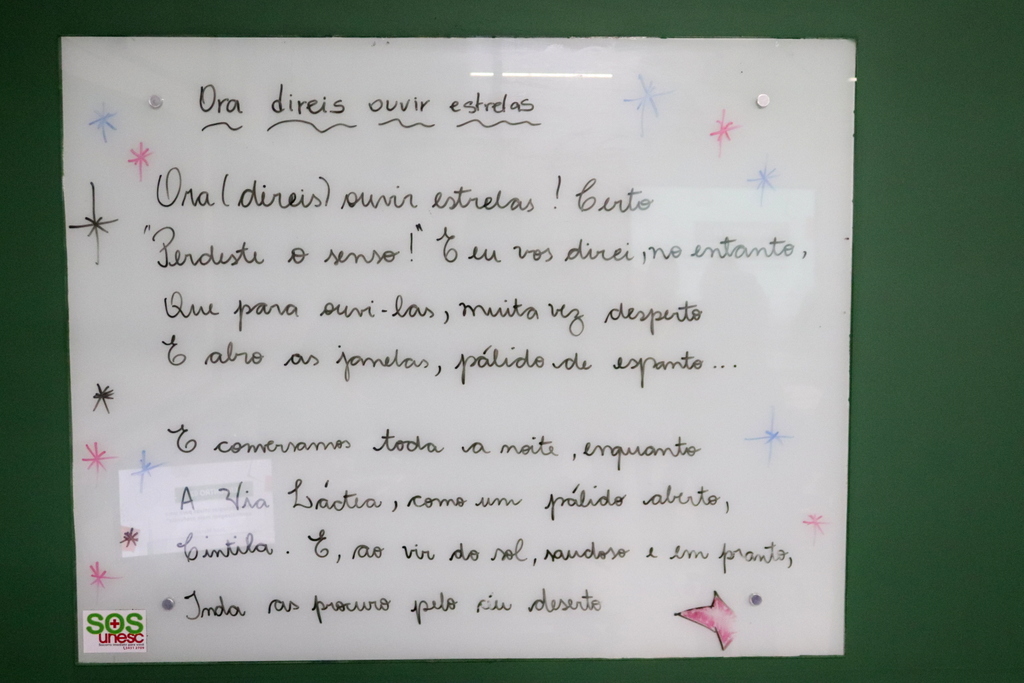 Ora direis ouvir estrelas
Ora (direis) ouvir estrelas! Certo
"Perdeste o senso!" E eu vos direi, no entanto,
Que para ouvi-las, muita vez desperto
E abro as janelas, pálido de espanto...
E conversamos toda a noite, enquanto
A Via Láctea, como um pálido aberto,
Cintila. E, ao vir do sol, saudoso e em pranto,
Inda as procuro pelo céu deserto
SOS
unesc